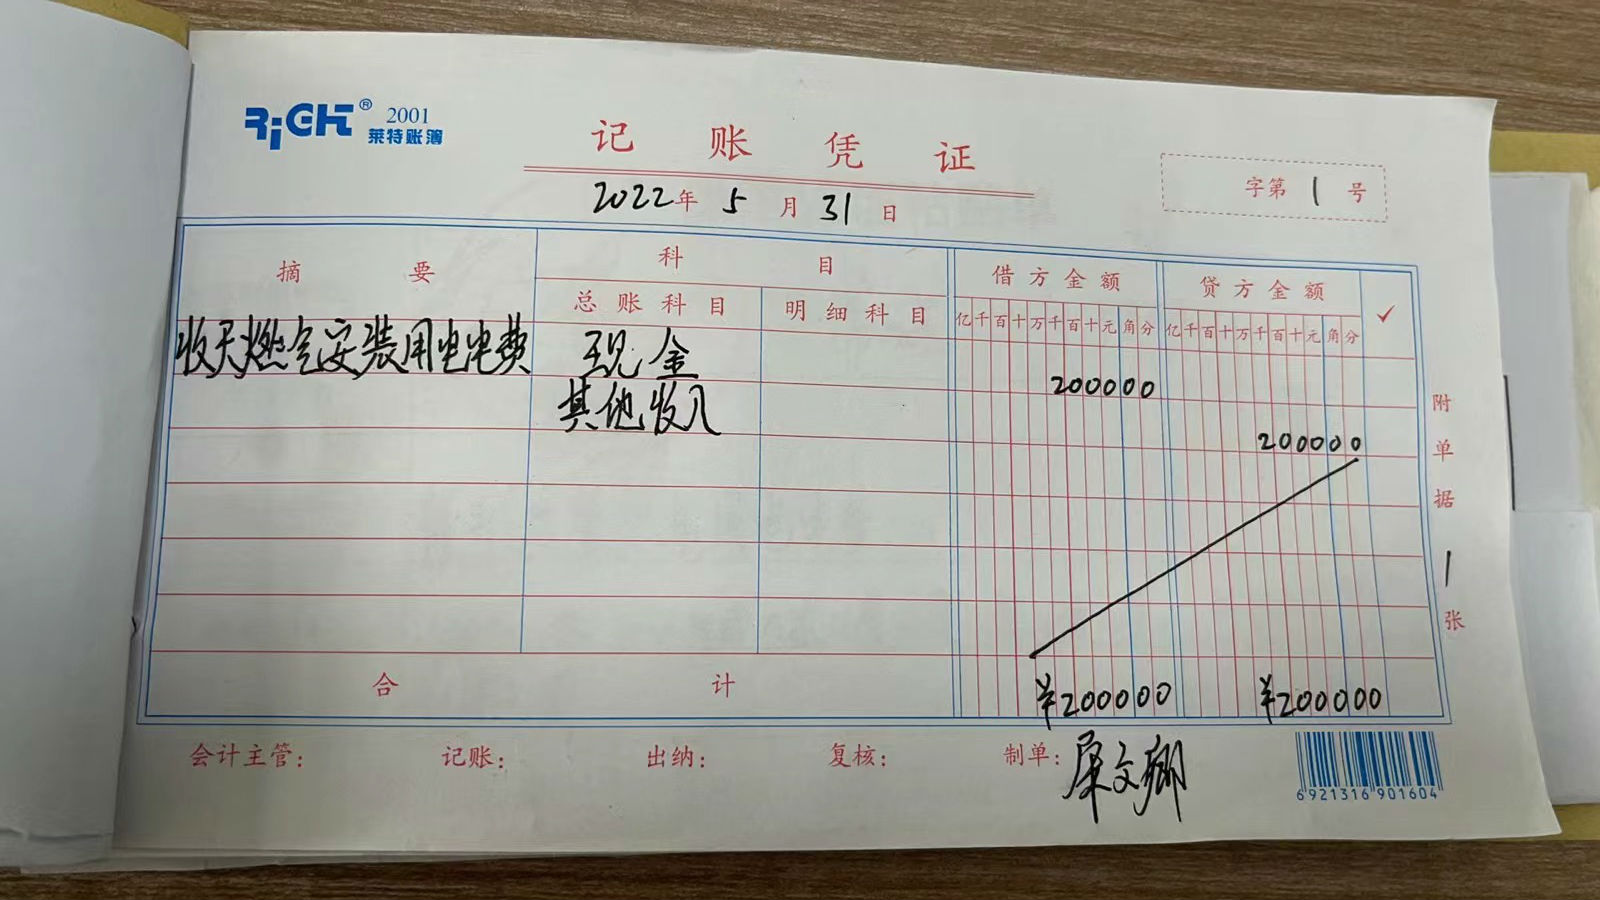 RiGHT® 2001
莱特账簿
记账凭证
2022年 5月 31日
字第 1 号
摘要
科目
借方金额
贷方金额
✓
总账科目
明细科目
亿千百十万千百十元角分
亿千百十万千百十元角分
收天燃气安装用电电费
现金
200000
其他收入
200000
附单据 1 张
合计
¥200000
¥200000
会计主管:
记账:
出纳:
复核:
制单:
文卿
6921316901604